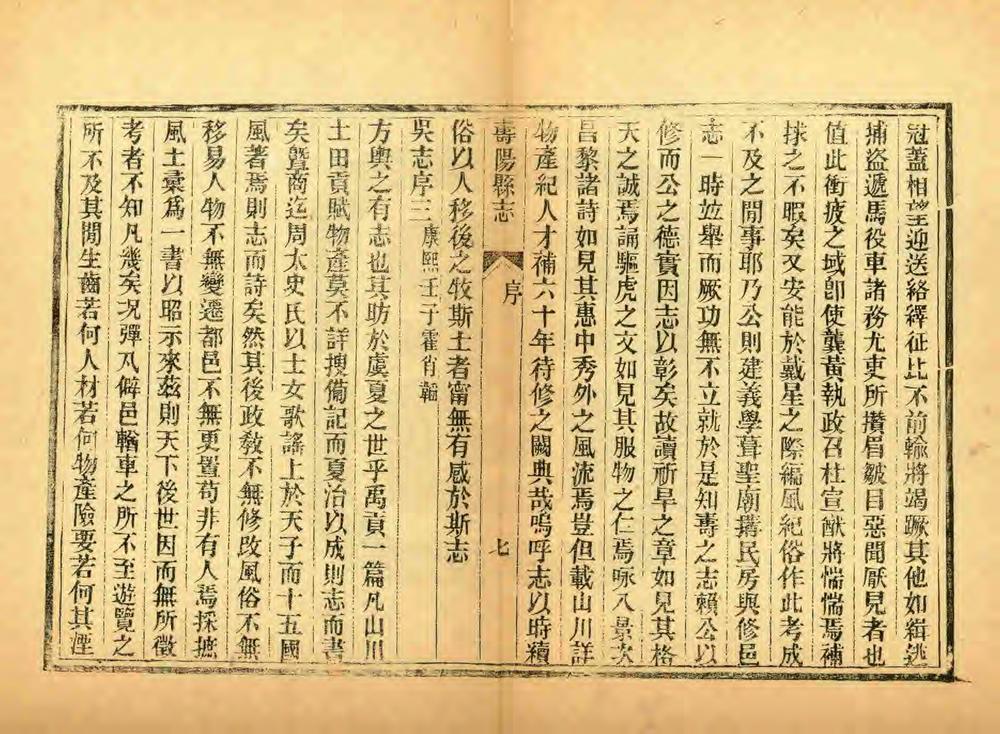 冠蓋相望迎送絡繹征比不前輸將竭蹶其他如緝逃
捕盜遞馬役車諸務尤吏所攢眉皺目惡聞厭見者也
值此衝疲之域卽使龔黃執政召杜宣猷將惴惴焉補
捄之不暇矣又安能於戴星之際編風紀俗作此考成
不及之閒事耶乃公則建義學葺聖廟搆民房與修邑
志一時並舉而厥功無不立就於是知壽之志賴公以
修而公之德實因志以彰矣故讀祈旱之章如見其格
天之誠焉誦驅虎之文如見其服物之仁焉咏八景次
昌黎諸詩如見其惠中秀外之風流焉豈但載山川詳
物產紀人才補六十年待修之闕典哉嗚呼志以時續
壽陽縣志
序
七
俗以人移後之牧斯土者甯無有感於斯志
吳志序三 康熙壬子霍肖韜
方輿之有志也其昉於虞夏之世乎禹貢一篇凡山川
土田貢賦物產莫不詳搜備記而夏治以成則志而書
矣曁商迄周太史氏以士女歌謠上於天子而十五國
風著焉則志而詩矣然其後政敎不無修改風俗不無
移易人物不無變遷都邑不無更置苟非有人焉採摭
風土彚爲一書以昭示來茲則天下後世因而無所徵
考者不知凡幾矣况彈丸僻邑輶車之所不至遊覽之
所不及其閒生齒若何人材若何物產險要若何其湮